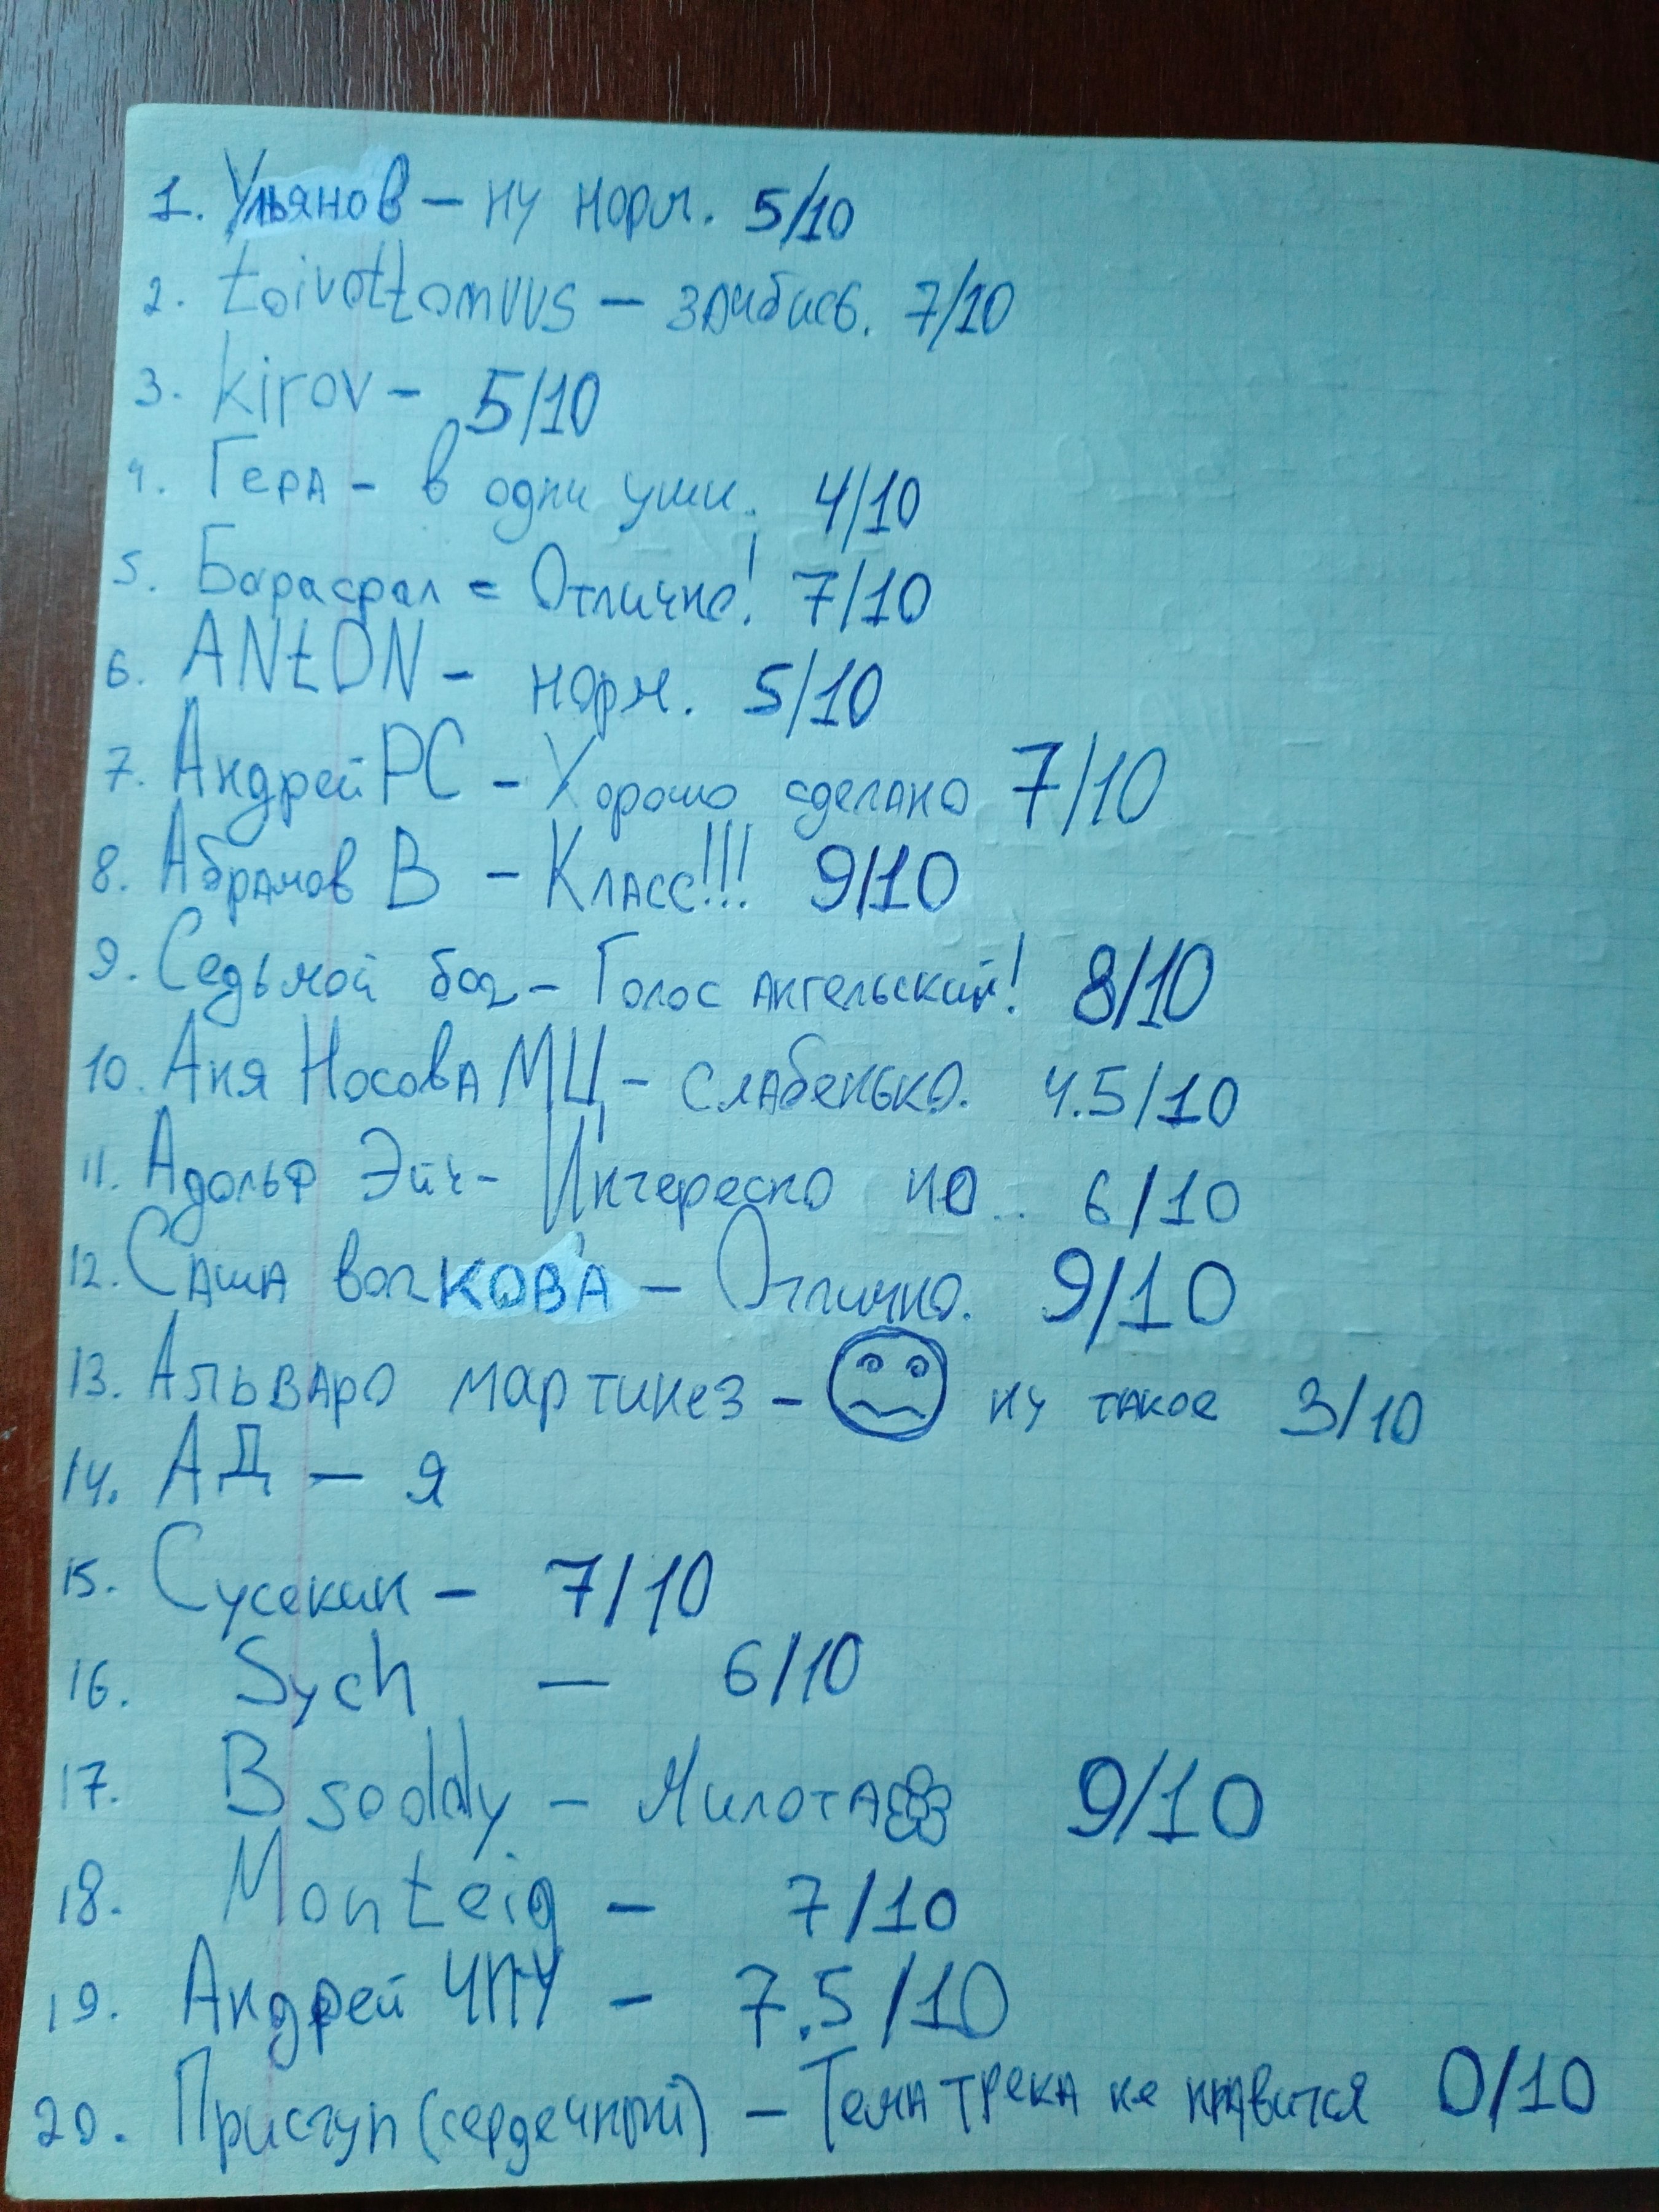 1. Ульянов — ну норм. 5/10
2. toivottomuus — заибись. 7/10
3. kirov - 5/10
4. Гера - в одни уши. 4/10
5. = Отлично! 7/10
6. ANtON - норм. 5/10
7. Андрей РС - Хорошо сделано 7/10
8. Абрамов В - Класс!!! 9/10
9. Седьмой бог - Голос ангельский! 8/10
10. Аня Носова МЦ - слабенько. 4.5/10
11. Адольф Эйч - Интересно но.. 6/10
12. Саша волкова — Отлично. 9/10
13. Альваро мартинез - ну такое 3/10
14. АД — я
15. Сусекин - 7/10
16. Sych — 6/10
17. Bsoddy - Милота 9/10
18. Monteig - 7/10
19. Андрей ЧПУ - 7.5/10
20. Приступ (сердечный) — Тема трека не нравится 0/10